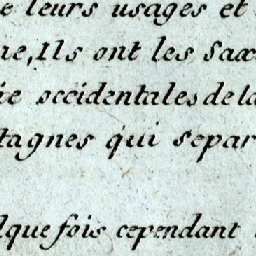 e leurs usages et
ne, Ils ont les Sax
ie occidentales de la
tagnes qui separ
lque fois cependant